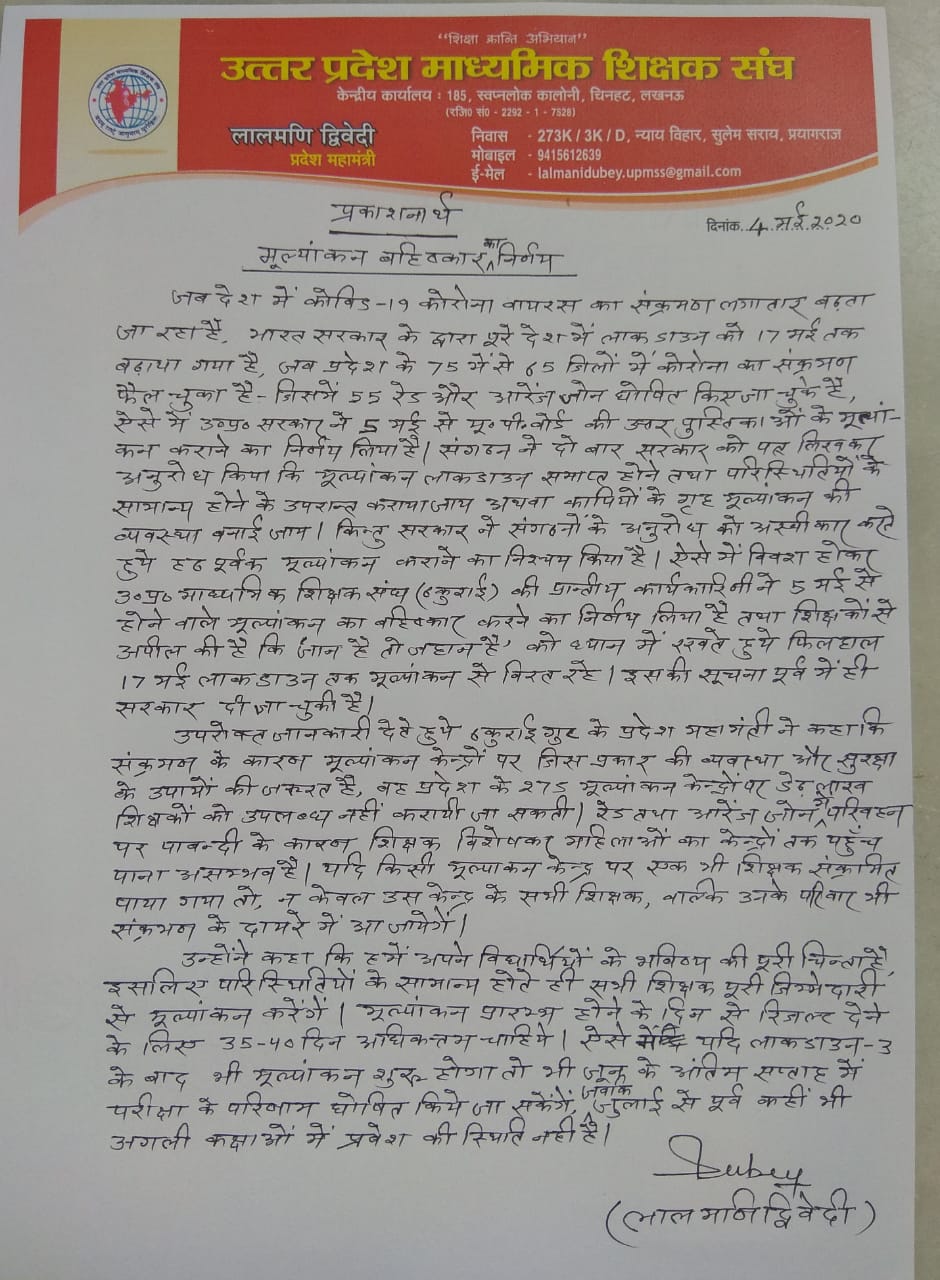 “शिक्षा क्रान्ति अभियान”
उत्तर प्रदेश माध्यमिक शिक्षक संघ
केन्द्रीय कार्यालय : 185, स्वप्नलोक कालोनी, चिनहट, लखनऊ
(रजि0 सं0 - 2292 - 1 - 7528)
लालमणि द्विवेदी
प्रदेश महामंत्री
निवास - 273K / 3K / D, न्याय विहार, सुलेम सराय, प्रयागराज
मोबाइल - 9415612639
ई-मेल - lalmanidubey.upmss@gmail.com
प्रकाशनार्थ
दिनांक. 4 मई 2020
मूल्यांकन बहिष्कार का निर्णय
जब देश में कोविड-19 कोरोना वायरस का संक्रमण लगातार बढ़ता
जा रहा है, भारत सरकार के द्वारा पूरे देश में लाकडाउन को 17 मई तक
बढ़ाया गया है, जब प्रदेश के 75 में से 65 जिलों में कोरोना का संक्रमण
फैल चुका है- जिसमें 55 रेड और आरेंज जोन घोषित किए जा चुके हैं,
ऐसे में उ०प्र० सरकार ने 5 मई से यू० पी० बोर्ड की उत्तर पुस्तिकाओं के मूल्यां-
कन कराने का निर्णय लिया है। संगठन ने दो बार सरकार को पत्र लिखकर
अनुरोध किया कि मूल्यांकन लाकडाउन समाप्त होने तथा परिस्थितियों के
सामान्य होने के उपरान्त कराया जाय अथवा कापियों के गृह मूल्यांकन की
व्यवस्था बनाई जाय। किन्तु सरकार ने संगठनों के अनुरोध को अस्वीकार करते
हुये हठ पूर्वक मूल्यांकन कराने का निश्चय किया है। ऐसे में विवश होकर
उ०प्र० माध्यमिक शिक्षक संघ (ठकुराई) की प्रान्तीय कार्यकारिनी ने 5 मई से
होने वाले मूल्यांकन का बहिष्कार करने का निर्णय लिया है तथा शिक्षकों से
अपील की है कि 'जान है तो जहान है' को ध्यान में रखते हुये फिलहाल
17 मई लाकडाउन तक मूल्यांकन से विरत रहें। इसकी सूचना पूर्व में ही
सरकार दी जा चुकी है।
उपरोक्त जानकारी देते हुये ठकुराई गुट के प्रदेश महामंत्री ने कहा कि
संक्रमण के कारण मूल्यांकन केन्द्रों पर जिस प्रकार की व्यवस्था और सुरक्षा
के उपायों की जरूरत है, वह प्रदेश के 275 मूल्यांकन केन्द्रों पर डेढ़ लाख
शिक्षकों को उपलब्ध नहीं करायी जा सकती। रेड तथा आरेंज जोन में परिवहन
पर पाबन्दी के कारण शिक्षक विशेषकर महिलाओं का केन्द्रों तक पहुँच
पाना असम्भव है। यदि किसी मूल्यांकन केन्द्र पर एक भी शिक्षक संक्रमित
पाया गया तो, न केवल उस केन्द्र के सभी शिक्षक, बल्कि उनके परिवार भी
संक्रमण के दायरे में आ जायेगें।
उन्होंने कहा कि हमें अपने विद्यार्थियों के भविष्य की पूरी चिन्ता है,
इसलिए परिस्थितियों के सामान्य होते ही सभी शिक्षक पूरी जिम्मेदारी
से मूल्यांकन करेंगें। मूल्यांकन प्रारम्भ होने के दिन से रिजल्ट देने
के लिए 35-40 दिन अधिकतम चाहिये। ऐसे में यदि लाकडाउन-3
के बाद भी मूल्यांकन शुरू होगा तो भी जून के अंतिम सप्ताह में
परीक्षा के परिणाम घोषित किये जा सकेंगें, जबकि जुलाई से पूर्व कहीं भी
अगली कक्षाओं में प्रवेश की स्थिति नहीं है।
Dubey
(लालमणि द्विवेदी)